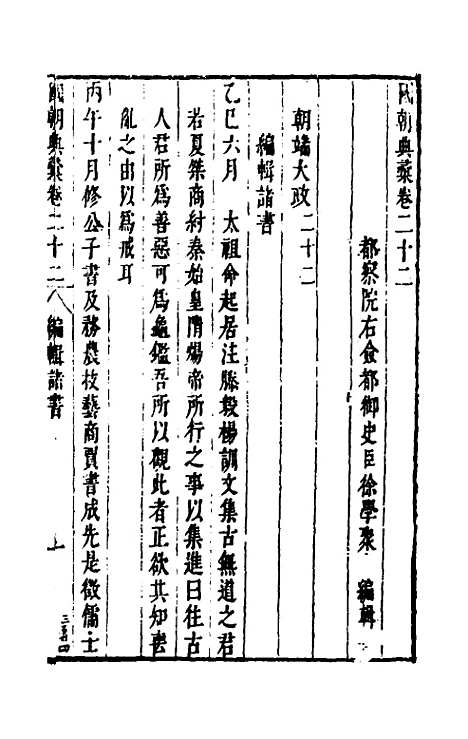 國朝典彙卷二十二
都察院右僉都御史臣徐學聚 編輯
朝端大政二十二
編輯諸書
乙巳六月 太祖命起居注滕毅楊訓文集古無道之君
若夏桀商紂秦始皇隋煬帝所行之事以集進曰往古
人君所爲善惡可爲龜鑑吾所以觀此者正欲其知喪
亂之由以爲戒耳
丙午十月修公子書及務農技藝商賈書成先是徵儒士
國朝典彙卷二十二 編輯諸書 上